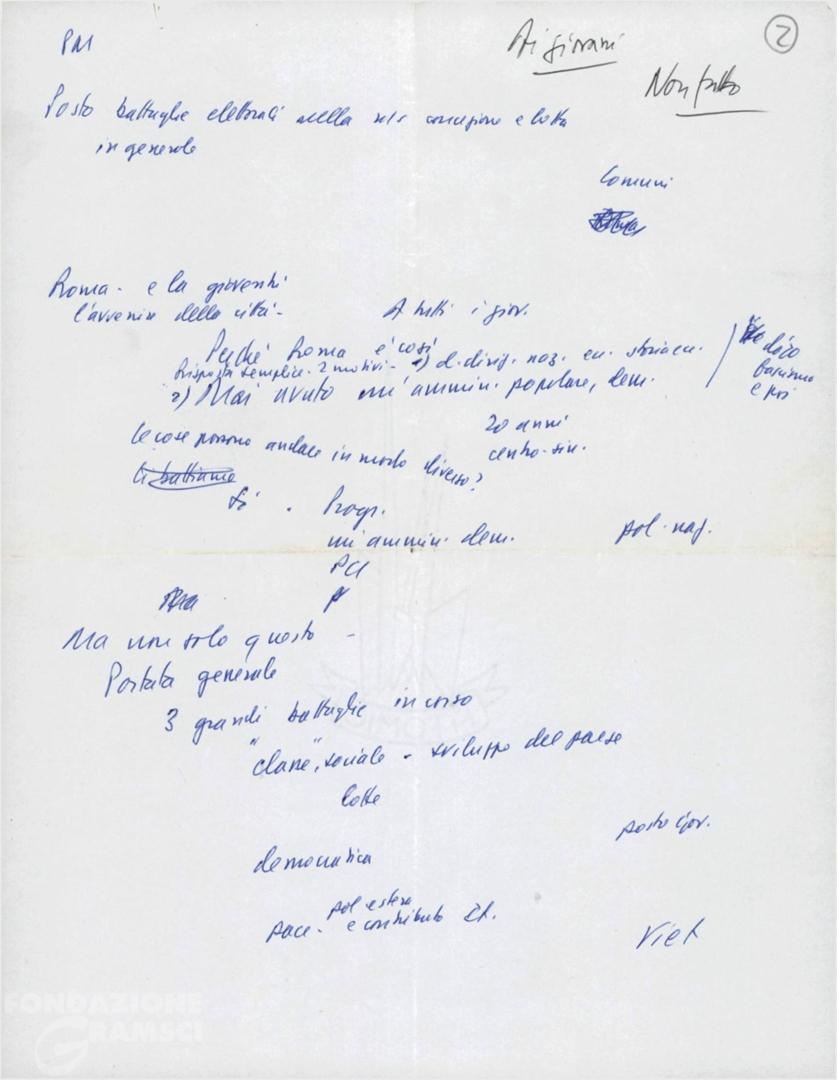 Ai giovani
2
Non fatto
Posto battaglie elettorali nella ns concezione e lotta
in generale
Comuni
Roma - e la gioventù
l'avvenire della città -
A tutti i giov.
Perché Roma è così
Risposta semplice. 2 motivi - 1) d. dirig. naz. en. storiaca.
2) Mai avuto un'ammin. popolare, dem.
e poi
20 anni
centro-sin.
le cose possono andare in modo diverso?
Ci battiamo
Sì. Progr.
un'ammin. dem.
pol. naz.
PCI
Ma non solo questo -
Portata generale
3 grandi battaglie in corso
"classe", sociale - sviluppo del paese
lotte
posto giov.
democratica
pol estera
pace - e contributo It.
Viet
FONDAZIONE
GRAMSCI